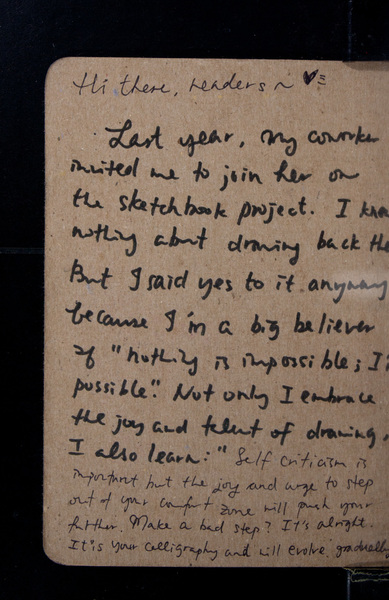 Hi there, readers ~ ♥
Last year, my coworker
invited me to join her on
the sketchbook project. I kno
nothing about drawing back the
But I said yes to it anyway
because I'm a big believer
of "nothing is impossible; I'
possible". Not only I embrace
the joy and talent of drawing,
I also learn: "Self criticism is
important but the joy and urge to step
out of your comfort zone will push your
further. Make a bad step? It's alright.
It is your calligraphy and will evolve gradually